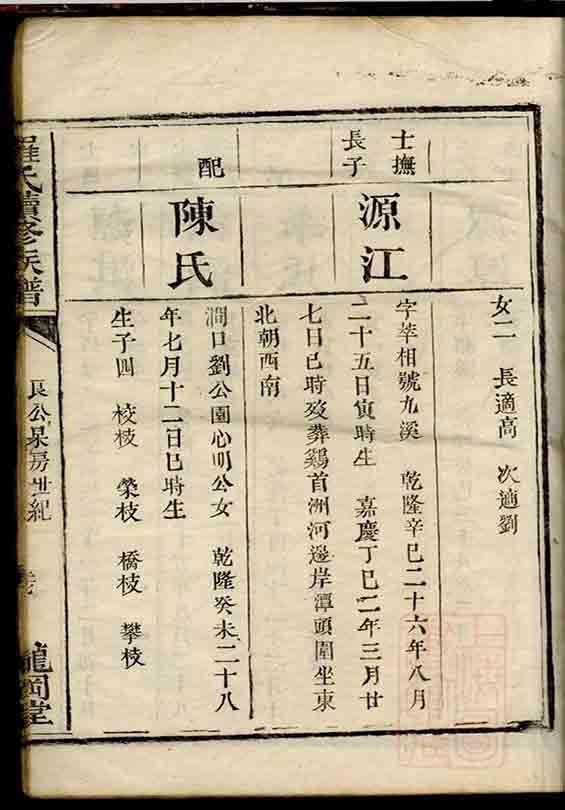 女二 長適高 次適劉
士撫
長子
源江
字萃相號九溪 乾隆辛巳二十六年八月
二十五日寅時生 嘉慶丁巳二年三月廿
七日巳時歿葬鷄首洲河邊岸潭頭圍坐東
北朝西南
配
陳氏
澗口劉公園心明公女 乾隆癸未二十八
年七月十二日巳時生
生子四 校枝 榮枝 橋枝 攀枝
羅氏續修族譜
良公杲房世紀
龍岡堂